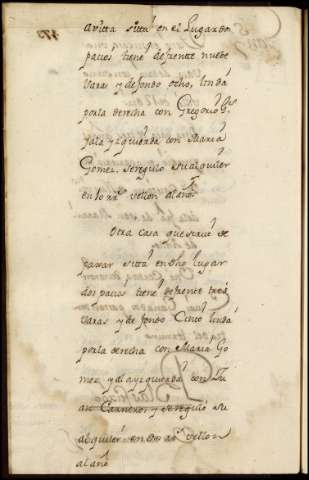 arriua sittª en el Lugar dos
pattios tiene de frente nuebe
Varas y de fondo ocho, linda
por la derecha con Gregorio
y ala yzquierda con Maria
Gomez, se regulo su alquiler
en rrˢ vellon al año
Otra Casa que sirue de
pajar sittª en dho lugar
dos pattios tiene de frente tres
Varas y de fondo Cinco linda
por la derecha con Maria Go
mez, y al ayzquierda con Ju
an Carnero, y se regulo su
alquiler en dos rrˢ vellon
al año